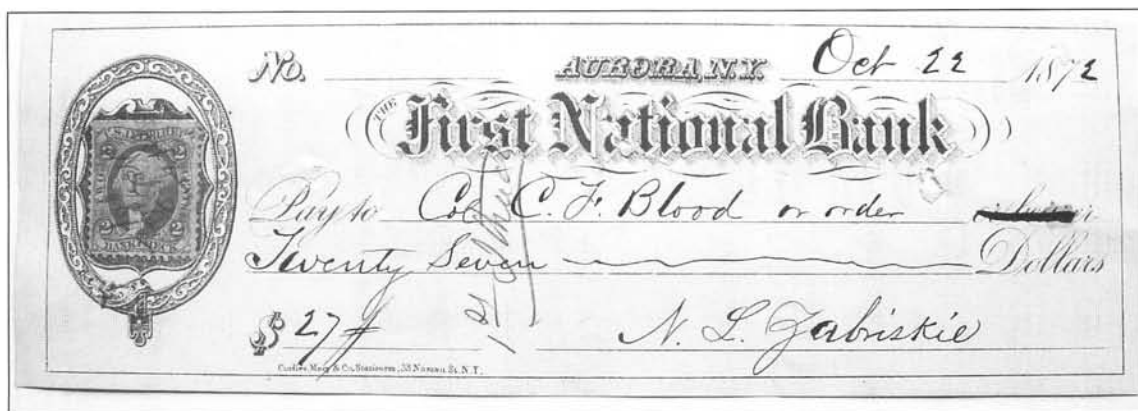 No. AURORA, N.Y. Oct 22 1872
THE
First National Bank
Pay to Col C. F. Blood or order
Twenty Seven Dollars
$ 27 N. L. Zabriskie
& Co. Stationers, 58 St. N.Y.
U.S. INTER. REV.
2 2
2 2
BANK CHECK